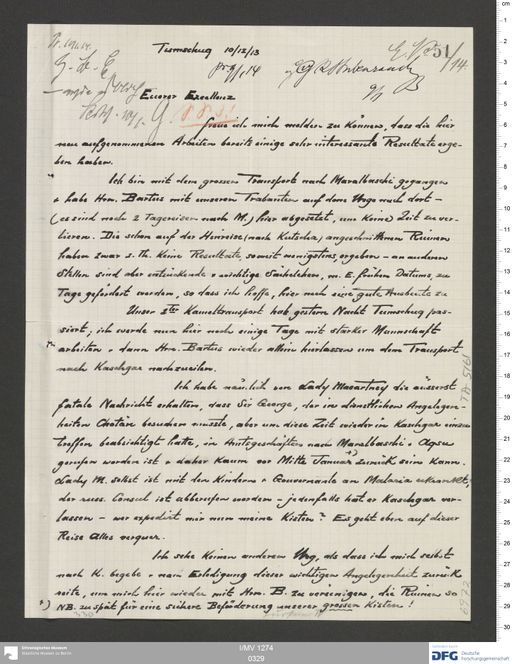 Tumschug 10/12/13
51/14
Euerer Exzellenz
freue ich mich melden zu können, dass die hier
neu aufgenommenen Arbeiten bereits einige sehr interessante Resultate erge-
ben haben.
Ich bin mit dem grossen Transporte nach Maralbaschi gegangen
& habe Hrn. Bartus mit unseren Trabanten auf dem Wege nach dort –
(es sind noch 2 Tagereisen nach M.) hier abgesetzt, um keine Zeit zu ver-
lieren. Die schon auf der Hinreise (nach Kutscha) angeschnittenen Ruinen
haben zwar z. Th. keine Resultate soweit wenigstens ergeben – an anderen
Stellen sind aber entzückende & wichtige Sächelchen, m. E. frühen Datums, zu
Tage gefördert worden, so dass ich hoffe, hier noch eine gute Ausbeute zu
Unser 2ter Kameltransport hat gestern Nacht Tumschug pas-
siert; ich werde nun hier noch einige Tage mit starker Mannschaft
arbeiten & dann Hrn. Bartus wieder allein hierlassen um dem Transport
nach Kaschgar nachzueilen.
Ich habe nämlich von Lady Macartney die äusserst
fatale Nachricht erhalten, dass Sir George, der in dienstlichen Angelegen-
heiten Chotän besuchen musste, aber um diese Zeit wieder in Kaschgar einzu
treffen beabsichtigt hatte, in Amtsgeschäften nach Maralbaschi & Aqsu
gerufen worden ist & daher kaum vor Mitte Januar +) zurück sein kann.
Lady M. selbst ist mit den Kindern & Gouvernante an Malaria erkrankt,
der russ. Consul ist abberufen worden – jedenfalls hat er Kaschgar ver-
lassen – wer expediert mir nun meine Kisten? Es geht eben auf dieser
Reise Alles verquer.
Ich sehe keinen anderen Weg, als dass ich mich selbst
nach K. begebe & nach Erledigung dieser wichtigen Angelegenheit zurück
reite, um mich hier wieder mit Hrn. B. zu vereinigen, die Ruinen so
+) NB. zu spät für eine sichere Beförderung unserer grossen Kisten!
Ethnologisches Museum
Staatliche Museen zu Berlin
I/MV 1274
0329
DFG Deutsche
Forschungsgemeinschaft